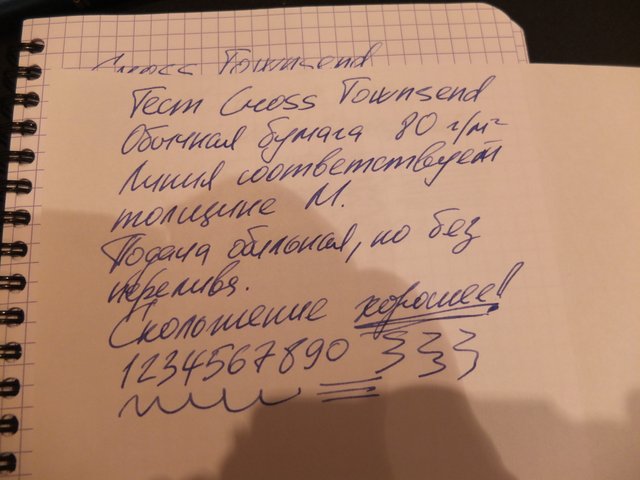 Cross Townsend
Тест Cross Townsend
Обычная бумага 80 г/м²
Линия соответствует
толщине М.
Подача обильная, но без
перелива.
Скольжение хорошее!!
1234567890